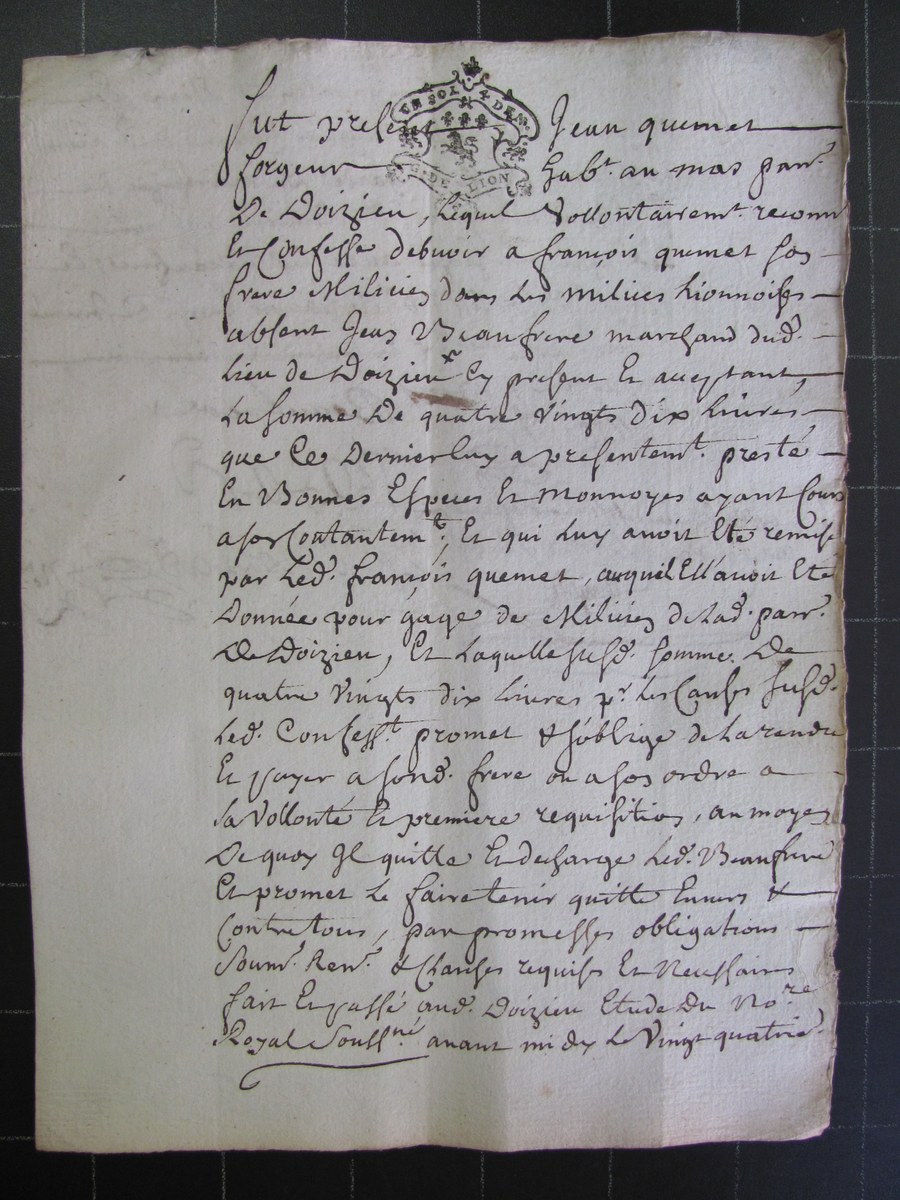 UN SOL 4 DEN.
G. DE LION
fut present Jean quemet
forgeur habt. au mas parr.
De Doizieu, Lequel Vollontairemt. reconnu
Et Confesse debuoir a françois quemet son
frere Miliciez dans les milices Lionnoises
absent Jean Beaufrere marchand dud.
Lieu de Doizieu x Cy present Et acceptant,
La somme De quatre Vingts dix Liures
que Ce Dernier luy a presentemt. presté
En Bonnes Especes Et Monnoyes ayant Cours
a son Contantemt., Et qui Luy auoit Eté remise
par Led. françois quemet, auquel Ell'auoit Eté
Donnée pour gage de Miliciez de Lad. parr.
De Doizieu, Et Laquelle susd. somme De
quatre Vingts dix Liures pr. Les Causes susd.
Led. Confesst. promet & s'oblige de La rendre
Et payer a sond. frere ou a son ordre a
sa Vollonté Et premiere requisition, au moyen
De quoy Il quitte Et decharge Led. Beaufrere
Et promet Le faire tenir quitte Enuers &
Contre tous, par promesses obligations
Soumr. Renr. & Clauses requises Et Necessaires
fait Et passé aud. Doizieu Etude Du Nore.
Royal Soussné. auant midy Le Vingt quatrie.